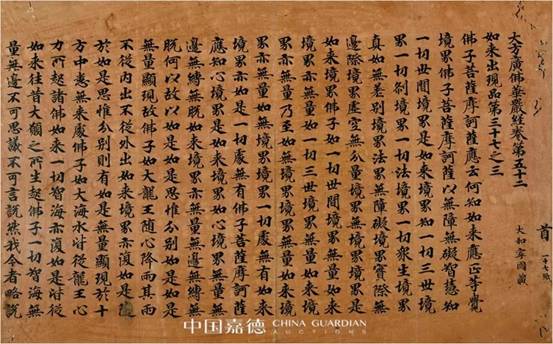 首
大和寧國藏
大方廣佛華嚴經卷第五十二
如來出現品第三十七之三
佛子菩薩摩訶薩應云何知如來應正等覺
境界佛子菩薩摩訶薩以無障無礙智慧知
一切世間境界是如來境界知一切三世境
界一切刹境界一切法境界一切衆生境界
真如無差別境界法界無障礙境界實際無
邊際境界虛空無分量境界無境界境界是
如來境界佛子如一切世間境界無量如來
境界亦無量如一切三世境界無量如來境
界亦無量乃至如無境界境界無量如來境
界亦無量如無境界境界一切處無有如來
境界亦如是一切處無有佛子菩薩摩訶薩
應知心境界是如來境界如心境界無量無
邊無縛無脫如來境界亦無量無邊無縛無
脫何以故以如是如是思惟分別如是如是
無量顯現故佛子如大龍王隨心降雨其雨
不從內出不從外出如來境界亦復如是隨
於如是思惟分別則有如是無量顯現於十
方中悉無來處佛子如大海水皆從龍王心
力所起諸佛如來一切智海亦復如是皆從
如來往昔大願之所生起佛子一切智海無
量無邊不可思議不可言說然我今者略說
中国嘉德 CHINA GUARDIAN
AUCTIONS